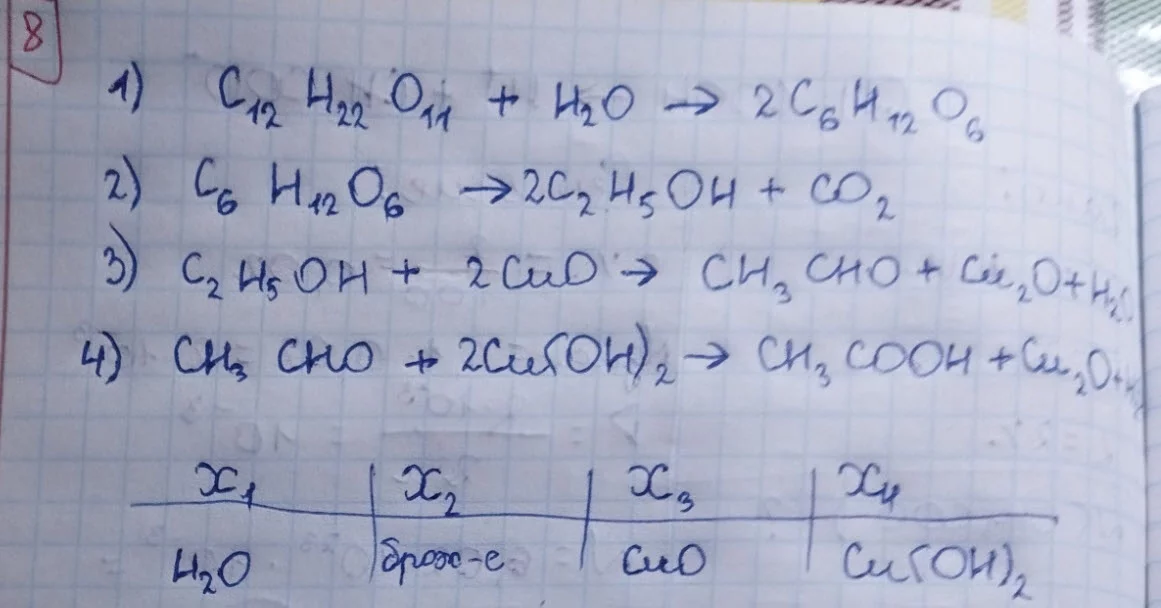 8
1) C₁₂H₂₂O₁₁ + H₂O → 2C₆H₁₂O₆
2) C₆H₁₂O₆ → 2C₂H₅OH + CO₂
3) C₂H₅OH + 2CuO → CH₃CHO + Cu₂O + H₂O
4) CH₃CHO + 2Cu(OH)₂ → CH₃COOH + Cu₂O +
X₁ X₂ X₃ X₄
H₂O брож-е CuO Cu(OH)₂